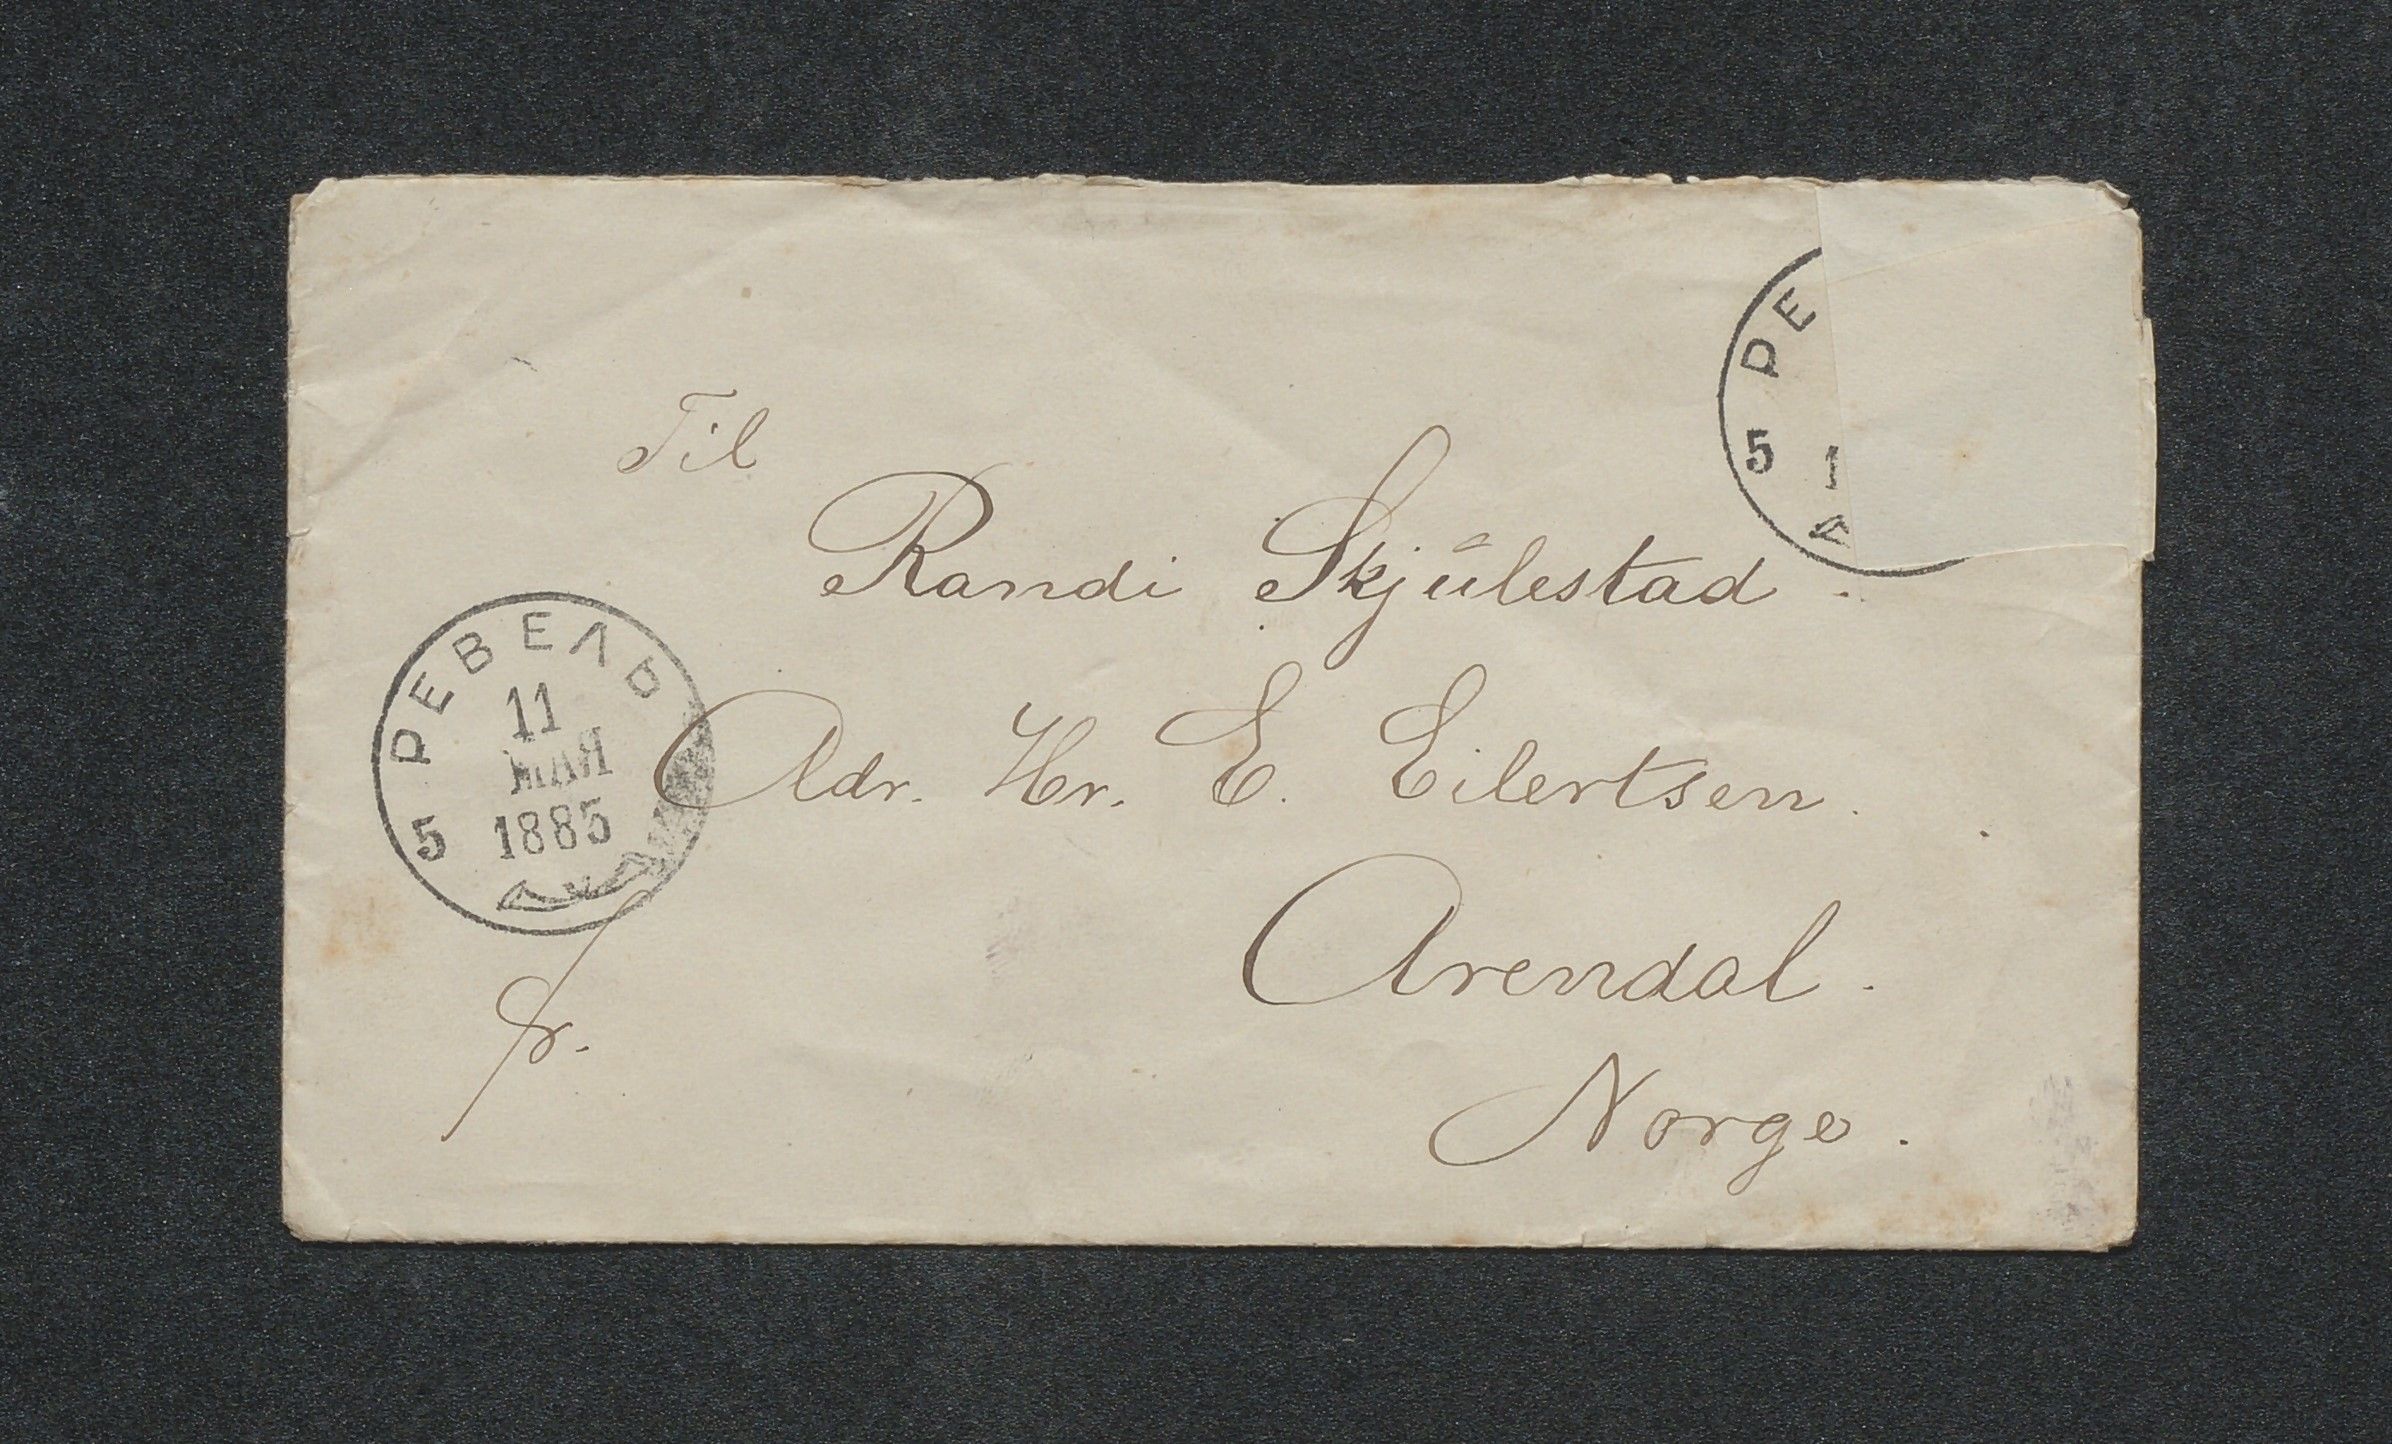 РЕ
5 1
Til
Randi Skjūlestad.
РЕВЕЛЬ
11
МАЯ
1885
5
Adr. Hr. E. Eilertsen.
Arendal.
fr.
Norge.